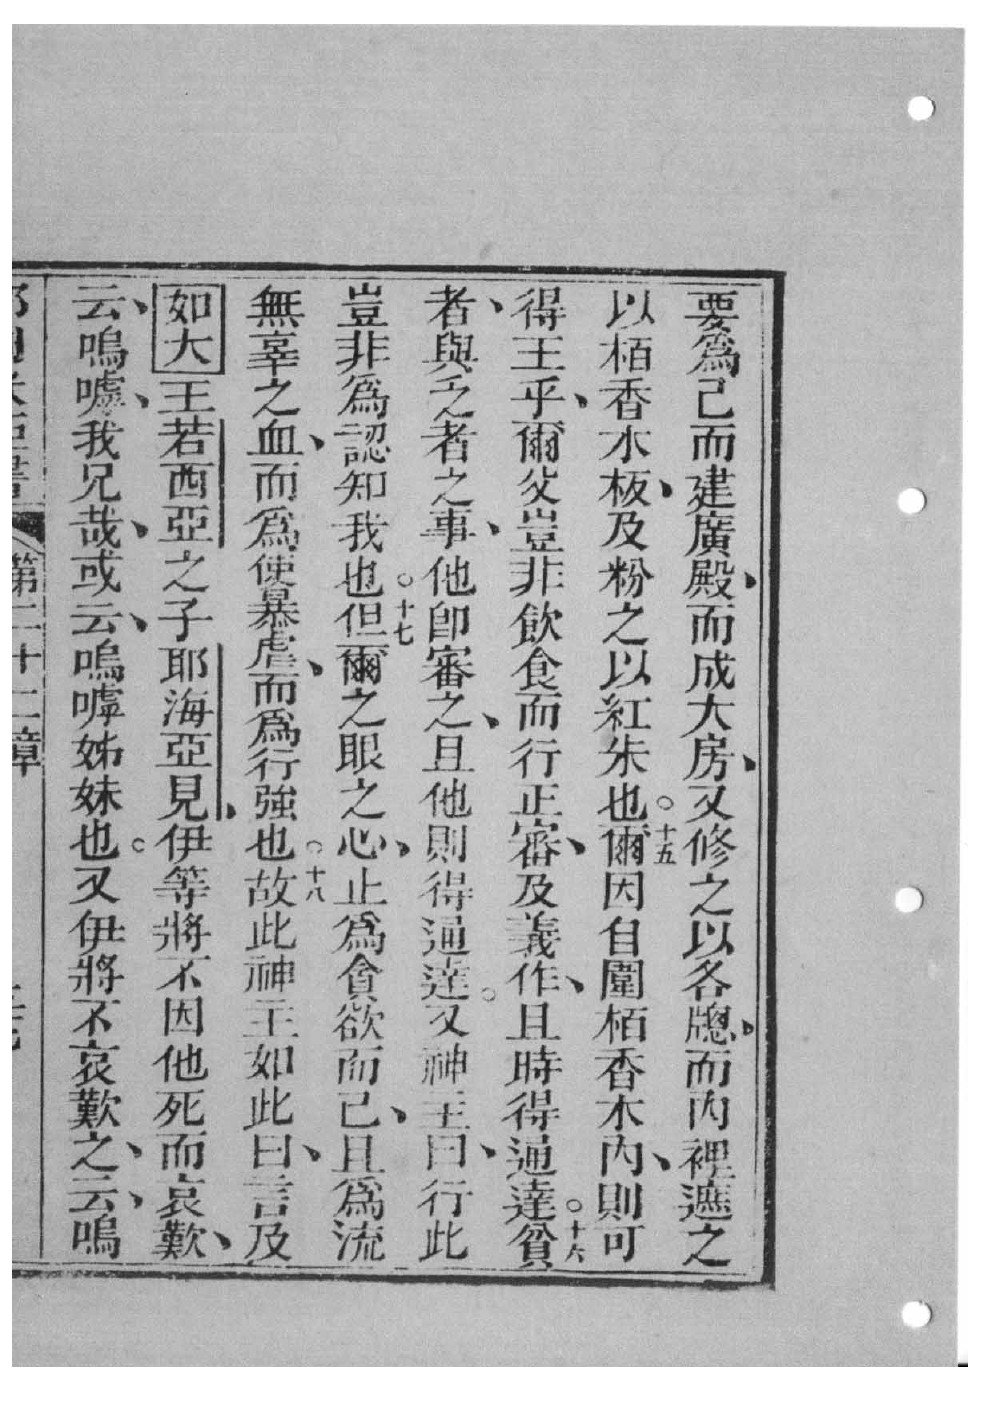 要爲己而建廣殿、而成大房、又修之以各牕、而內裡遮之
以栢香木板、及粉之以紅朱也。十五爾因自圍栢香木內、則可
得王乎、爾父豈非飲食而行正審、及義作、且時得通達。十六貧
者、與乏者之事、他卽審之、且他則得通達。又神主曰、行此
豈非爲認知我也。十七但爾之眼之心、止爲貪欲而已、且爲流
無辜之血、而爲使暴虐、而爲行強也。十八故此神主如此曰、言及
如大王若西亞之子耶海亞見、伊等將不因他死而哀歎、
云、嗚嘑、我兄哉、或云、嗚嘑姊妹也。又伊將不哀歎之、云、嗚
第二十二章